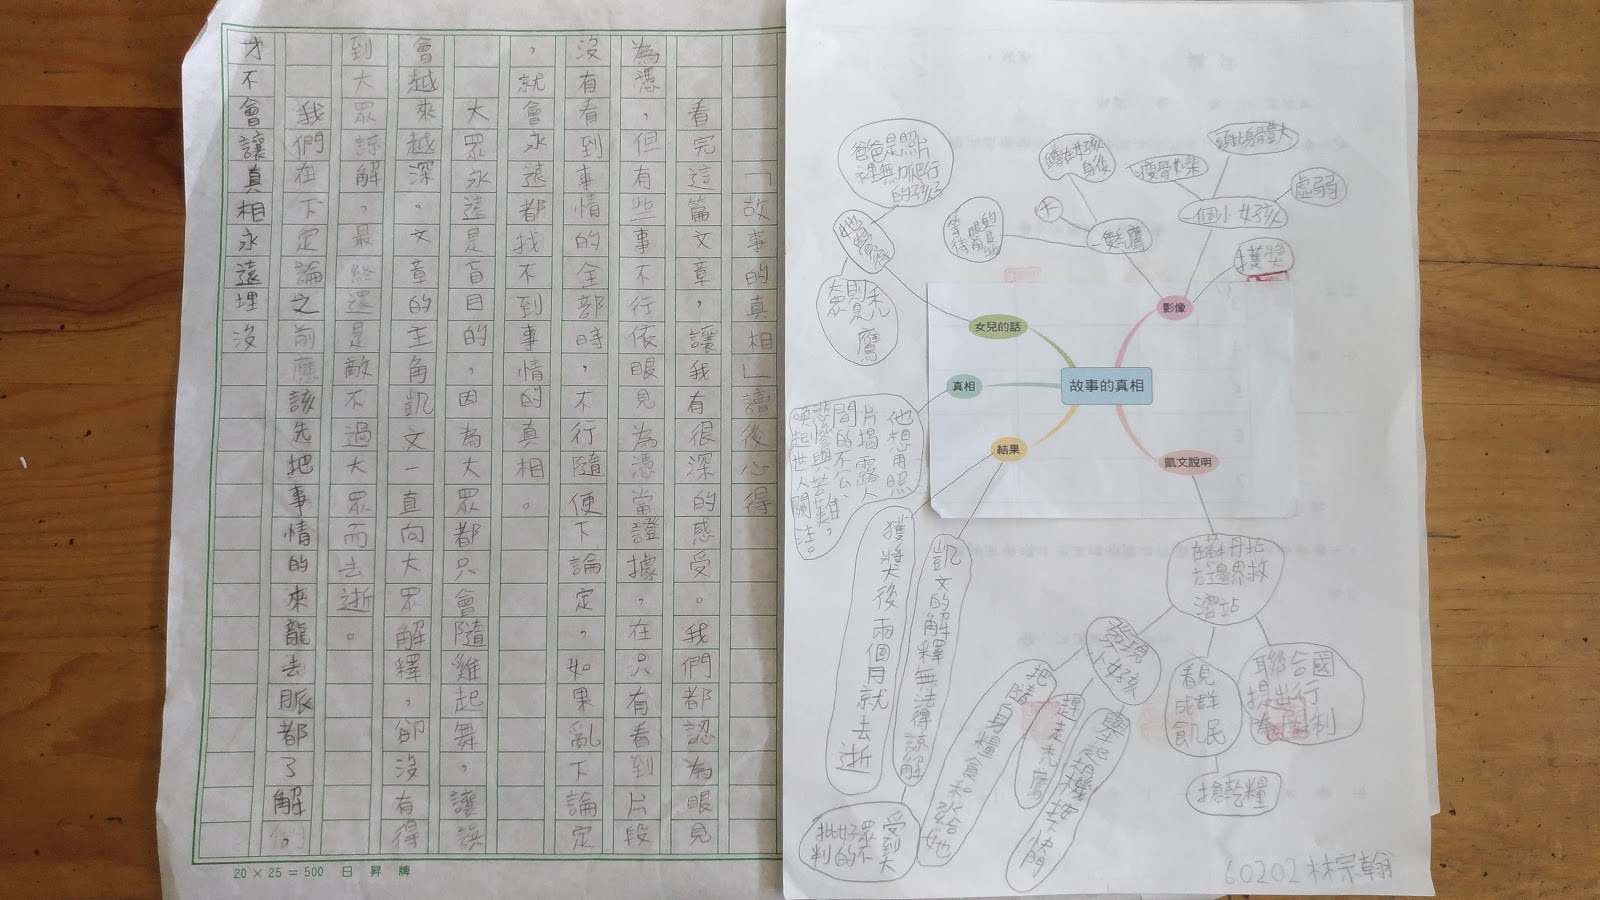 「故事的真相」讀後心得
看完這篇文章,讓我有很深的感受。我們都認為眼見
為憑,但有些事不行依眼見為憑當證據,在只有看到片段
沒有看到事情的全部時,不行隨便下論定,如果亂下論定
,就會永遠都找不到事情的真相。
大眾永遠是盲目的,因為大眾都只會隨雞起舞,讓誤
會越來越深。文章的主角凱文一直向大眾解釋,卻沒有得
到大眾諒解,最終還是敵不過大眾而去逝。
我們在下定論之前應該先把事情的來龍去脈都了解
才不會讓真相永遠埋沒
20×25=500 日昇牌
故事的真相
影像
獲獎
一個小女孩
虛弱
頭顱大
瘦骨如柴
禿鷹
大
蹲在女孩
身後
等待
眼前的
女兒的話
爸爸是照片
裡無力爬行
的孩子
大眾
則是禿
鷹
真相
他想用照
片揭露人
間的不公、
悲慘與苦難,
喚起世人關
注。
結果
獲獎後兩個月就去逝
凱文的解釋無法得諒解
受到大
眾不
好的
批判
凱文說明
在蘇丹北
方邊界救
濟站
發現
小女孩
把隨身糧食和水給她
趕走禿鷹
舉起相機按下快門
看見
成群
飢民
搶乾糧
聯合國
提出行
為
60202林宗翰